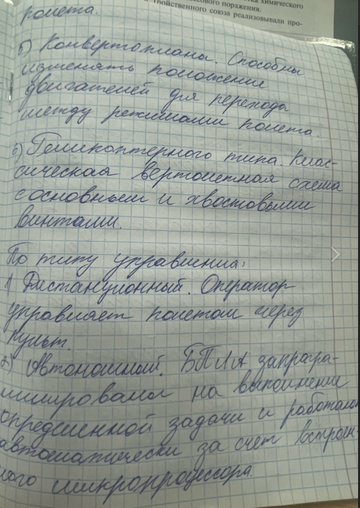 химического
ового поражения.
войственного союза реализовали про-
полета.
5) Конвертопланы. Способны
изменять положение
двигателей для перехода
между режимами полета.
6) Геликоптерного типа. Клас-
сическая вертолетная схема
с основным и хвостовыми
винтами.
По типу управления:
1. Дистанционный. Оператор
управляет полетом через
пульт
2) Автономный. БПЛА запрогра-
ммирован на выполнение
определенной задачи и работает
автоматически за счет встроен-
ного микропроцессора